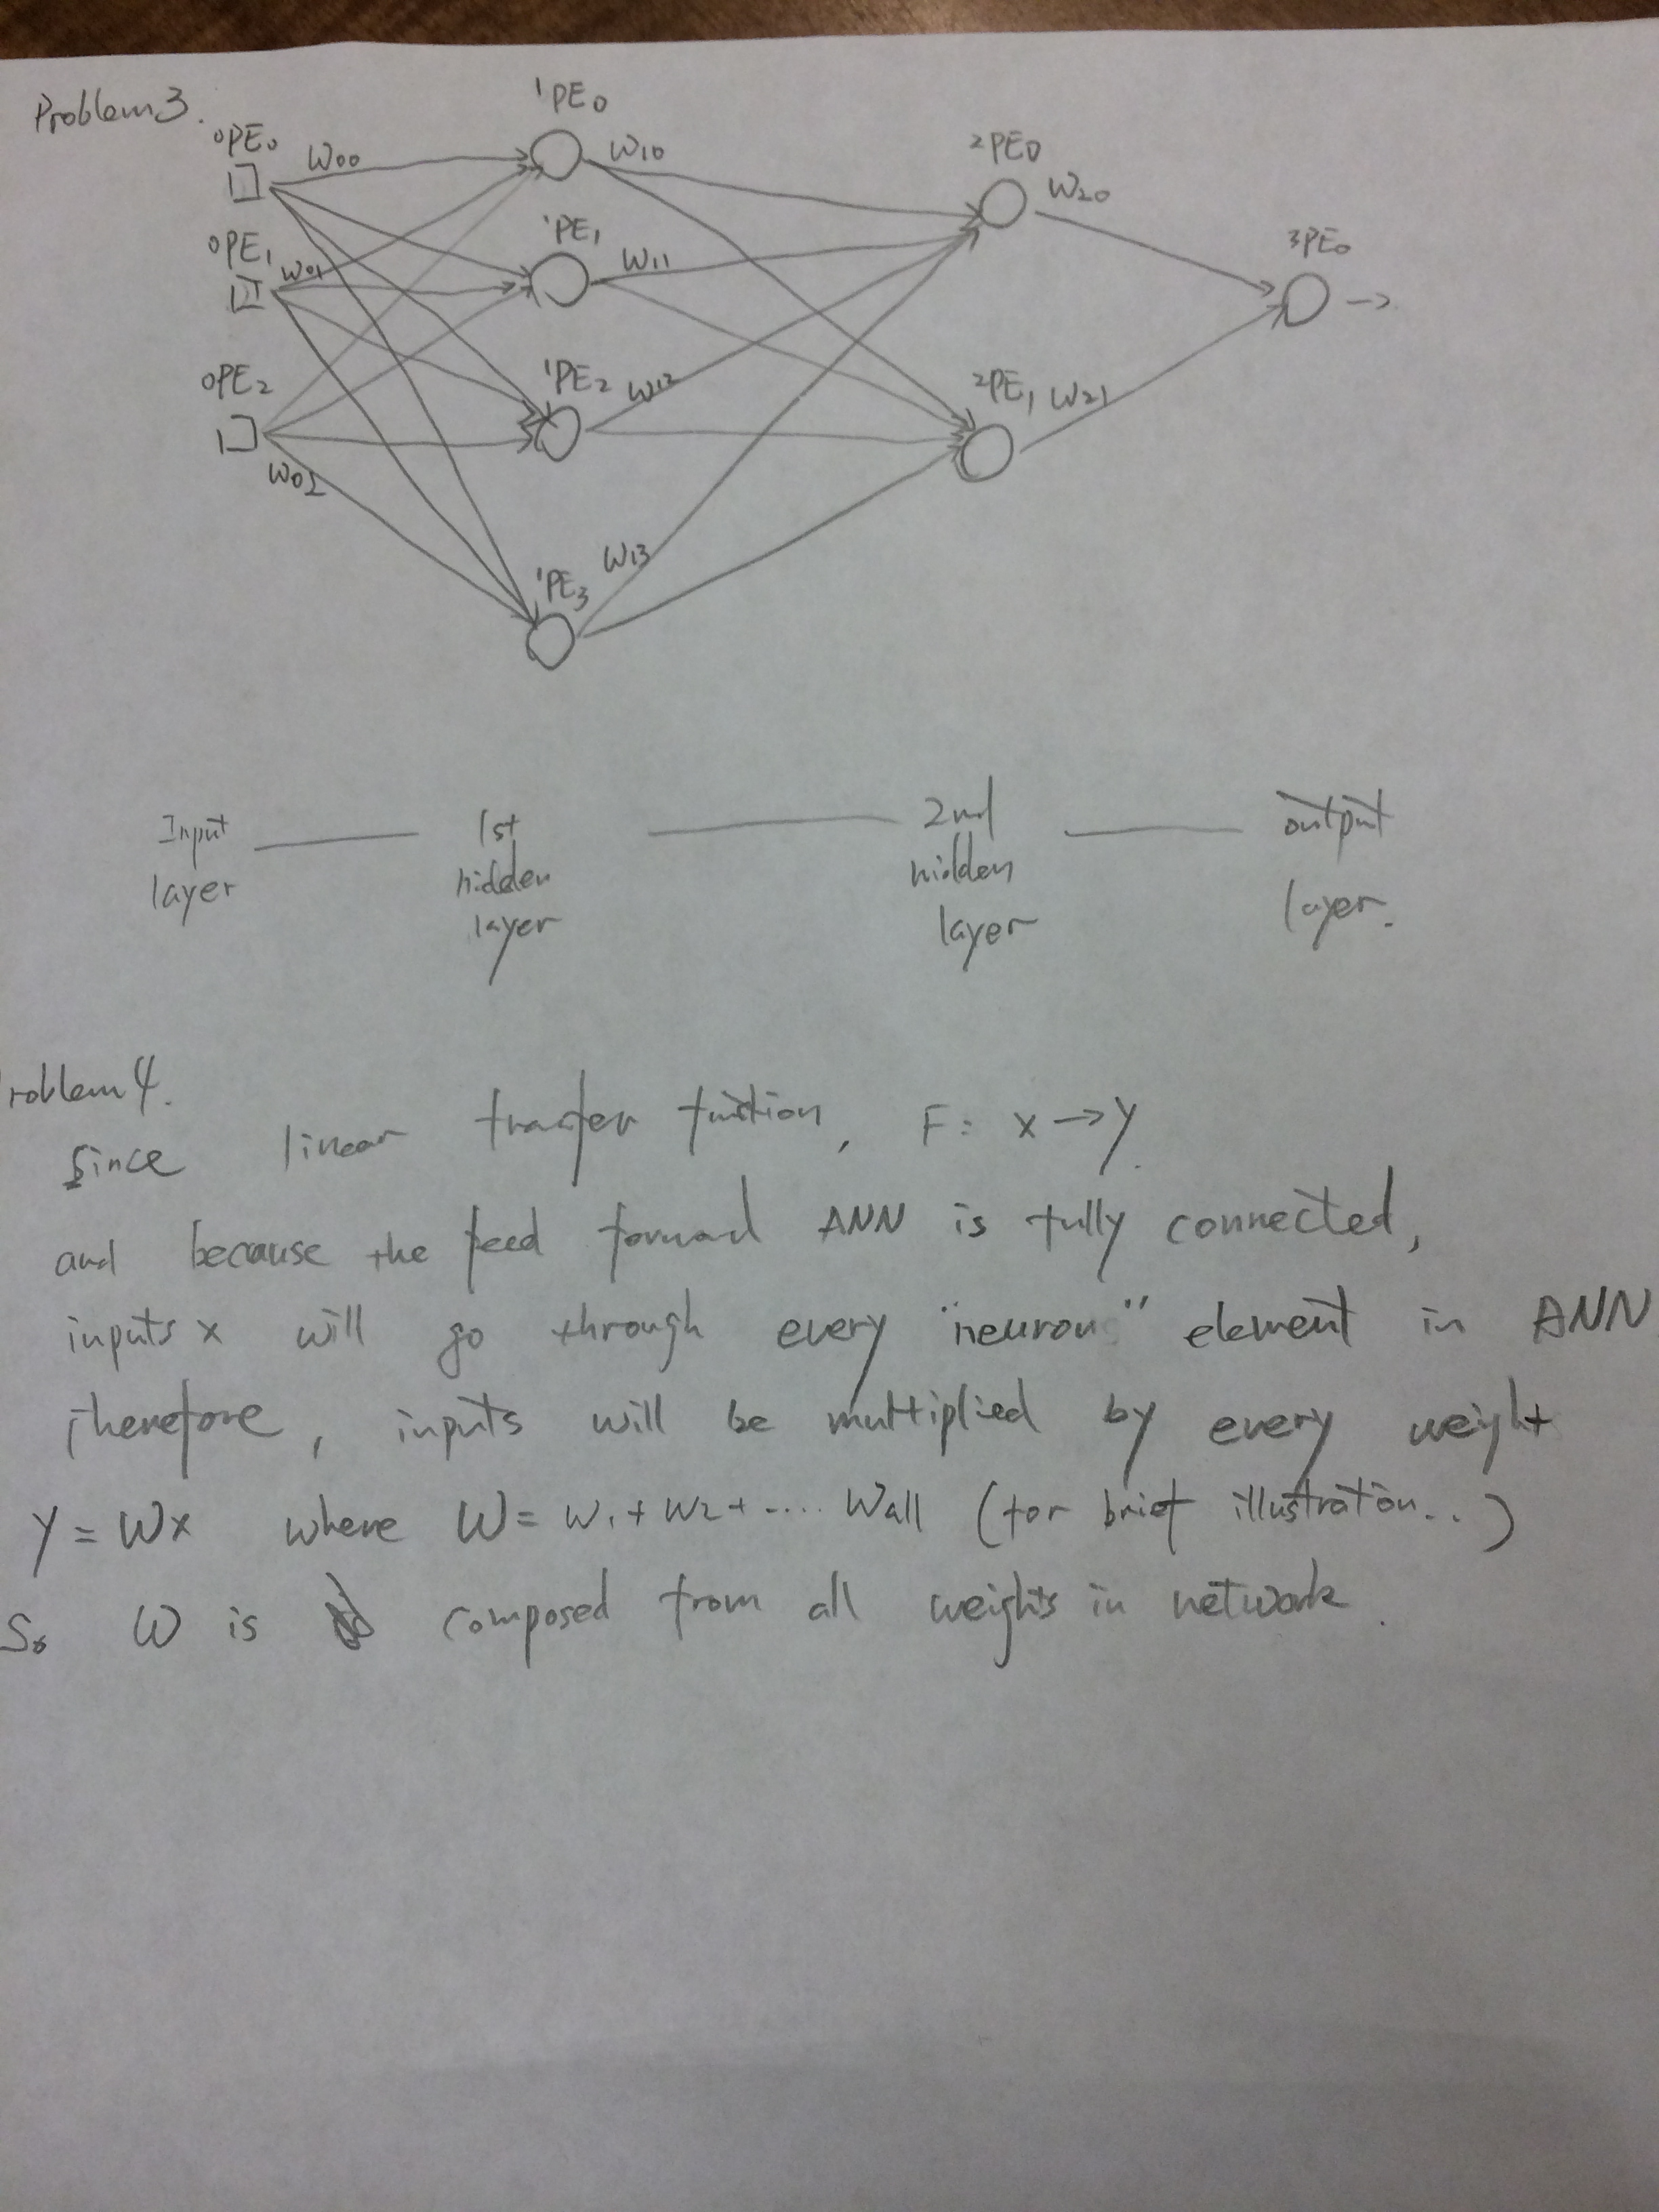 Problem 3.
1PE0
0PE0
W00
W10
2PE0
W20
0PE1
W01
1PE1
W11
3PE0
0PE2
W02
1PE2
W12
2PE1
W21
1PE3
W13
Input layer
1st hidden layer
2nd hidden layer
output layer.
roblem 4.
Since linear transfer function, F: x → y.
and because the feed forward ANN is fully connected,
inputs x will go through every "neuron" element in ANN
therefore, inputs will be multiplied by every weight
y = Wx where W = w1 + w2 + .... wall (for brief illustration..)
So W is composed from all weights in network.